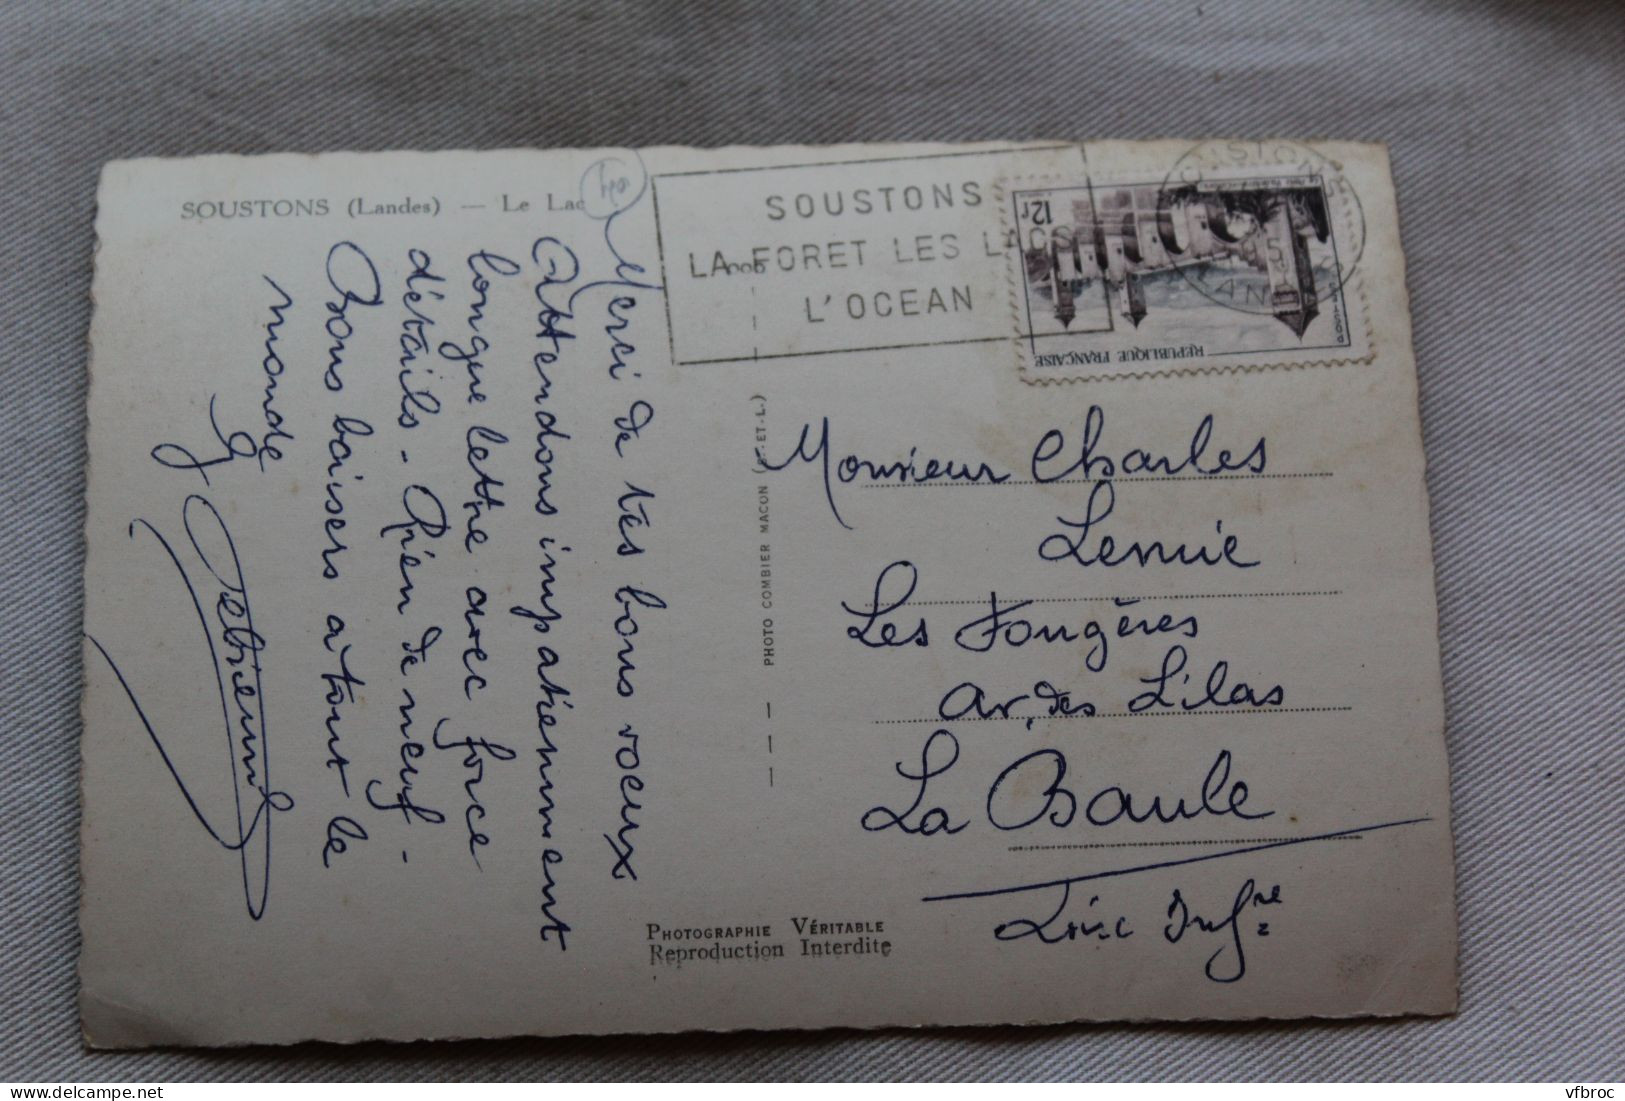 SOUSTONS (Landes) — Le Lac
Merci de tes bons voeux
Attendons impatiemment
longue lettre avec force
détails - Rien de neuf -
Bons baisers à tout le
monde
SOUSTONS
LA FORET LES LACS
L'OCEAN
12f
REPUBLIQUE FRANÇAISE
PHOTO COMBIER MACON (S.-ET-L.)
Monsieur Charles
Lemie
Les Fougères
av. des Lilas
La Baule
Loire Infre
PHOTOGRAPHIE VÉRITABLE
Reproduction Interdite
vfbroc